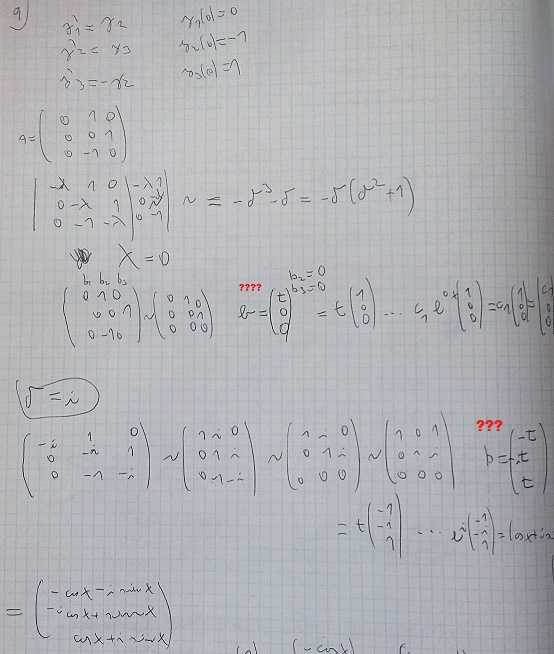 9)
y₁' = y₂ y₁(0)=0
y₂' = y₃ y₂(0)=-1
y₃' = -y₂ y₃(0)=1
A = ( 0 1 0
0 0 1
0 -1 0 )
| -λ 1 0 | -λ 1
0 -λ 1 | 0 -λ
0 -1 -λ | 0 -1 ~ = -λ³ - λ = -λ(λ²+1)
λ = 0
b₁ b₂ b₃
( 0 1 0
0 0 1
0 -1 0 ) ~ ( 0 1 0
0 0 1
0 0 0 ) ???? b₂=0
b₃=0
b = ( t
0
0 ) = t ( 1
0
0 ) ... c₁ e^0x ( 1
0
0 ) = c₁ ( 1
0
0 ) = ( c₁
0
0 )
λ = i
( -i 1 0
0 -i 1
0 -1 -i ) ~ ( 1 i 0
0 1 i
0 -1 -i ) ~ ( 1 i 0
0 1 i
0 0 0 ) ~ ( 1 0 1
0 1 i
0 0 0 ) ??? b = ( -t
-it
t )
= t ( -1
-i
1 ) ... ( -1
-i
1 ) = (cos x + i
= ( -cos x - i sin x
-i cos x + sin x
cos x + i sin x )